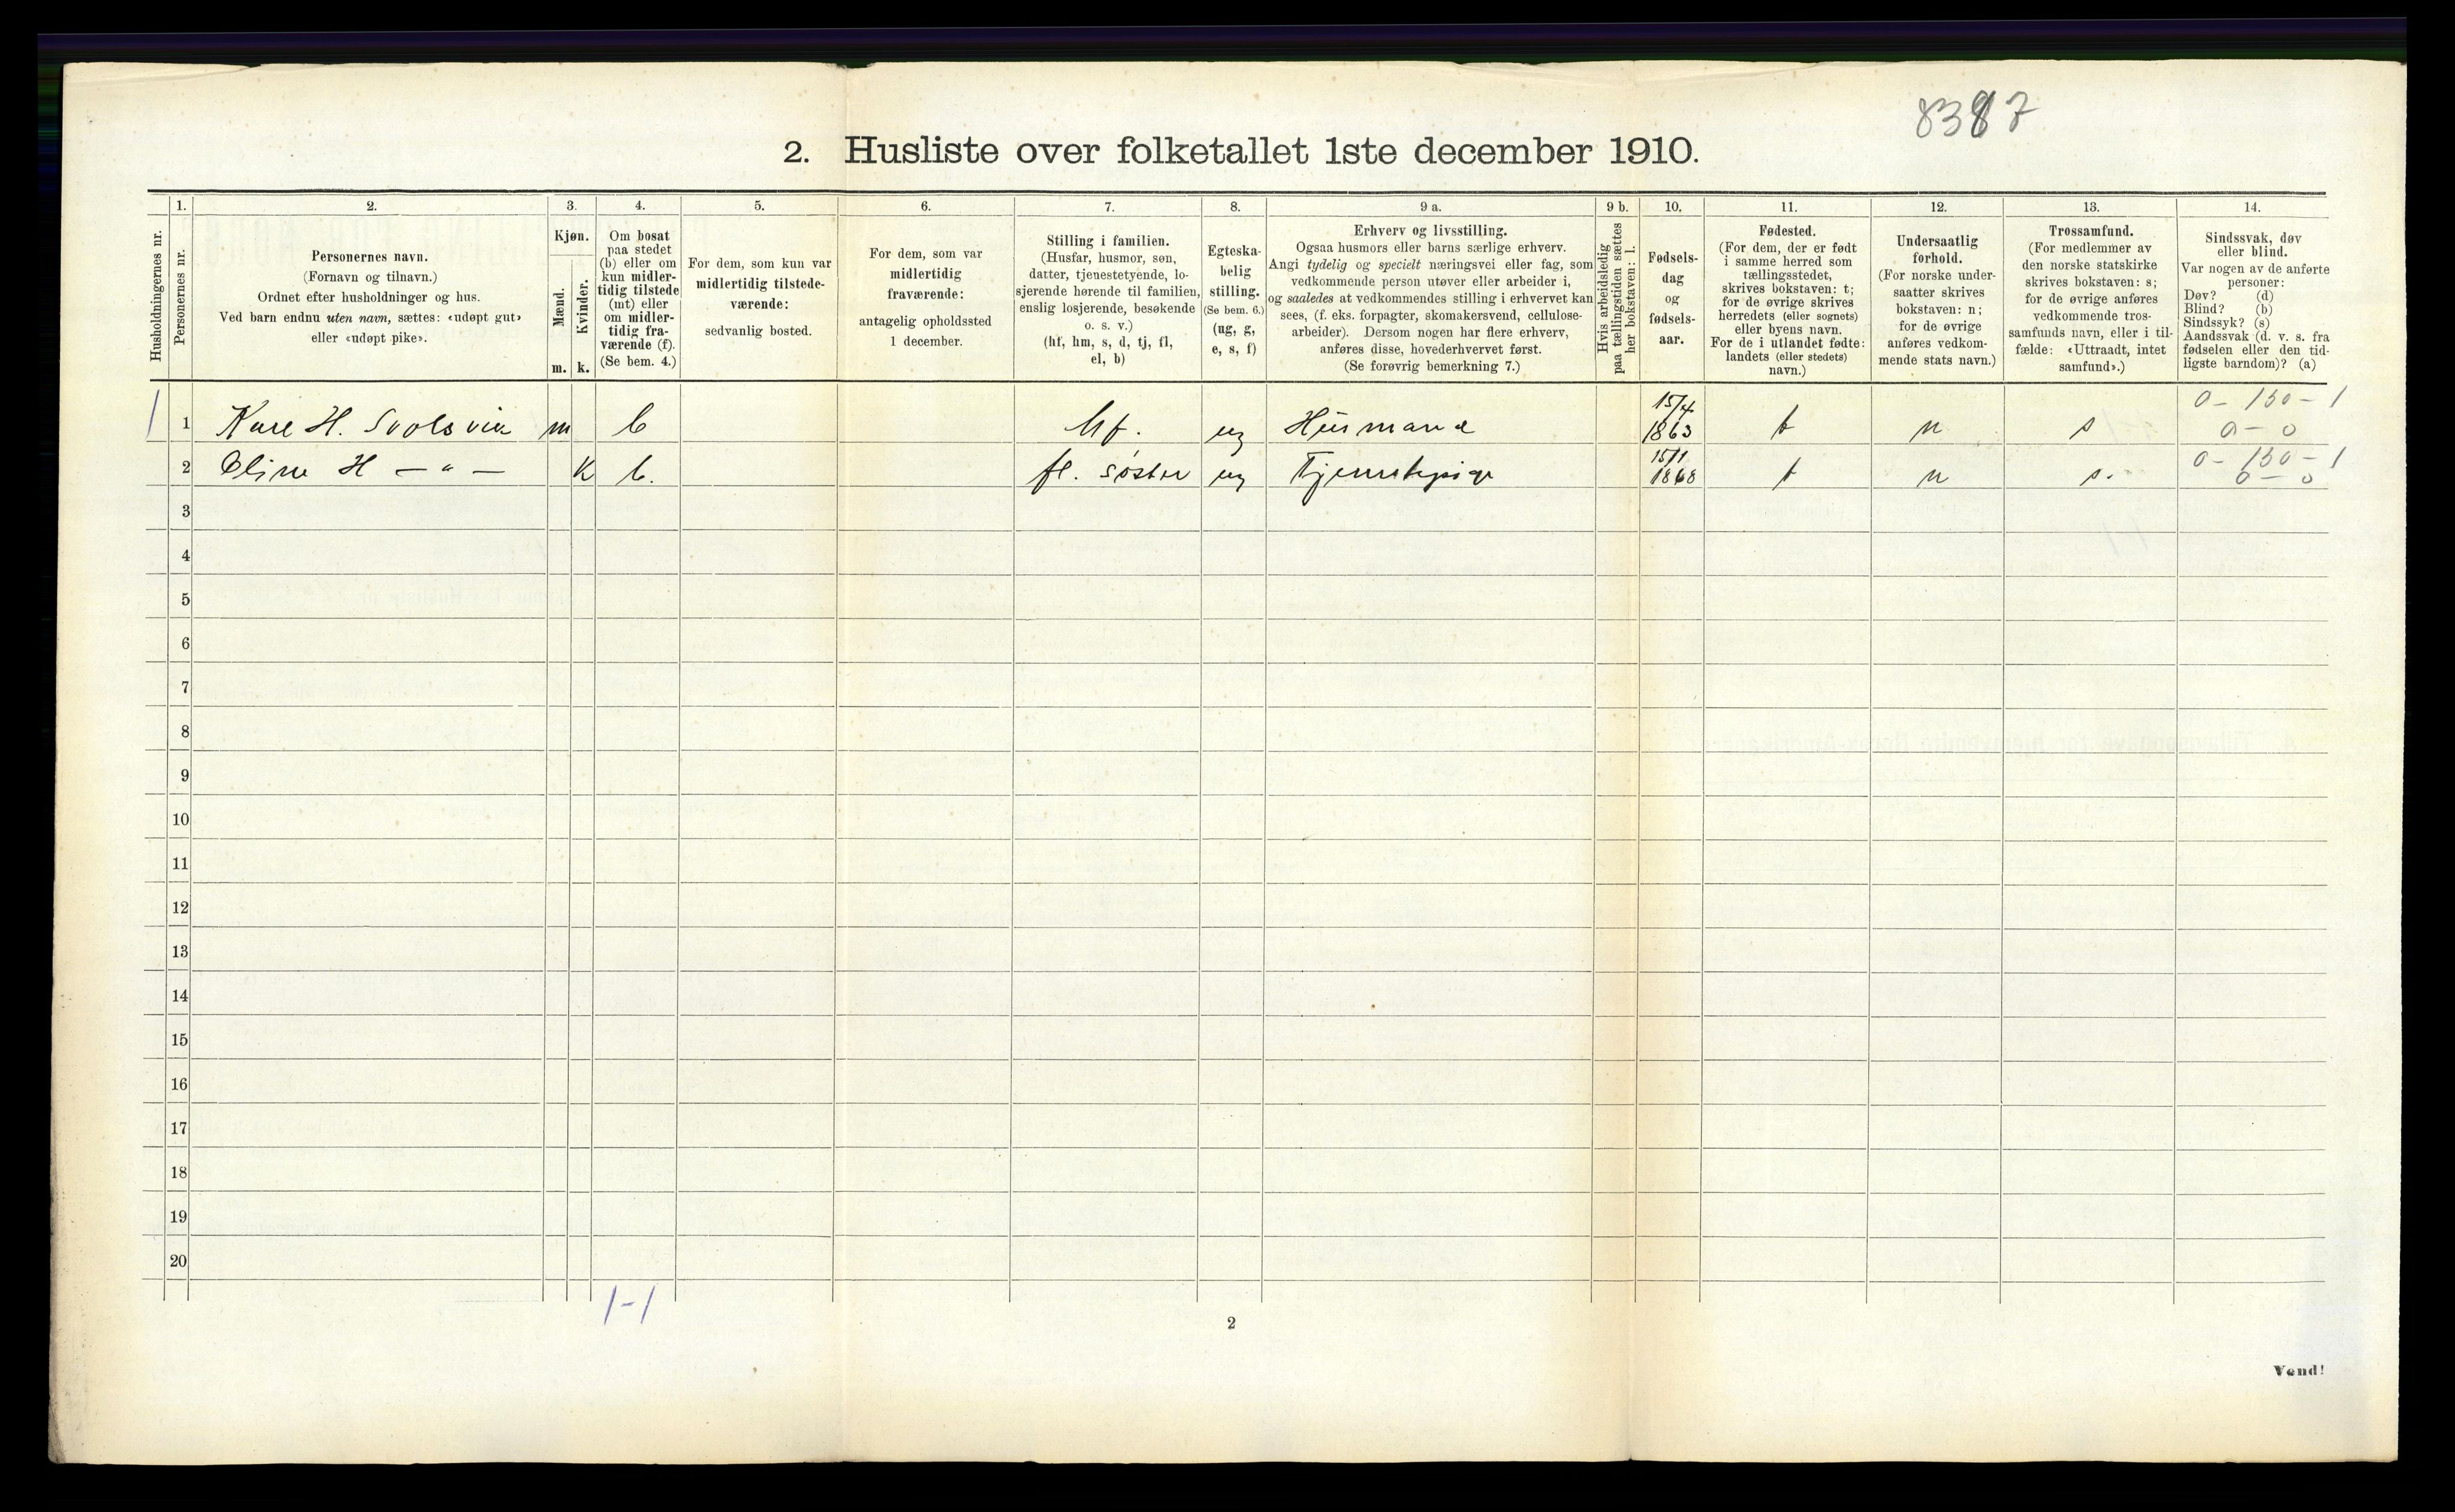 8387
2. Husliste over folketallet 1ste december 1910.
Husholdningernes nr.
1.
Personernes nr.
2.
Personernes navn.
(Fornavn og tilnavn.)
Ordnet efter husholdninger og hus.
Ved barn endnu uten navn, sættes: «udøpt gut»
eller «udøpt pike».
3.
Kjøn.
Mænd.
Kvinder.
m. k.
4.
Om bosat
paa stedet
(b) eller om
kun midler-
tidig tilstede
(mt) eller
om midler-
tidig fra-
værende (f).
(Se bem. 4.)
5.
For dem, som kun var
midlertidig tilstede-
værende:
sedvanlig bosted.
6.
For dem, som var
midlertidig
fraværende:
antagelig opholdssted
1 december.
7.
Stilling i familien.
(Husfar, husmor, søn,
datter, tjenestetyende, lo-
sjerende hørende til familien,
enslig losjerende, besøkende
o. s. v.)
(hf, hm, s, d, tj, fl,
el, b)
8.
Egteska-
belig
stilling.
(Se bem. 6.)
(ug, g,
e, s, f)
9 a.
Erhverv og livsstilling.
Ogsaa husmors eller barns særlige erhverv.
Angi tydelig og specielt næringsvei eller fag, som
vedkommende person utøver eller arbeider i,
og saaledes at vedkommendes stilling i erhvervet kan
sees, (f. eks. forpagter, skomakersvend, cellulose-
arbeider). Dersom nogen har flere erhverv,
anføres disse, hovederhvervet først.
(Se forøvrig bemerkning 7.)
9 b.
Hvis arbeidsledig
paa tællingstiden sættes
her bokstaven: l.
10.
Fødsels-
dag
og
fødsels-
aar.
11.
Fødested.
(For dem, der er født
i samme herred som
tællingsstedet,
skrives bokstaven: t;
for de øvrige skrives
herredets (eller sognets)
eller byens navn.
For de i utlandet fødte:
landets (eller stedets)
navn.)
12.
Undersaatlig
forhold.
(For norske under-
saatter skrives
bokstaven: n;
for de øvrige
anføres vedkom-
mende stats navn.)
13.
Trossamfund.
(For medlemmer av
den norske statskirke
skrives bokstaven: s;
for de øvrige anføres
vedkommende tros-
samfunds navn, eller i til-
fælde: «Uttraadt, intet
samfund».)
14.
Sindssvak, døv
eller blind.
Var nogen av de anførte
personer:
Døv? (d)
Blind? (b)
Sindssyk? (s)
Aandssvak (d. v. s. fra
fødselen eller den tid-
ligste barndom)? (a)
1 1 H. m b hf. ug Husmand 15/4 1863 t n s 0 - 130 - 1
0 - 0
2 H — " — K b. fl. søster ug Tjenestepige 15/1 1868 t n s. 0 - 130 - 1
0 - 0
3
4
5
6
7
8
9
10
11
12
13
14
15
16
17
18
19
20
1-1
2
Vend!